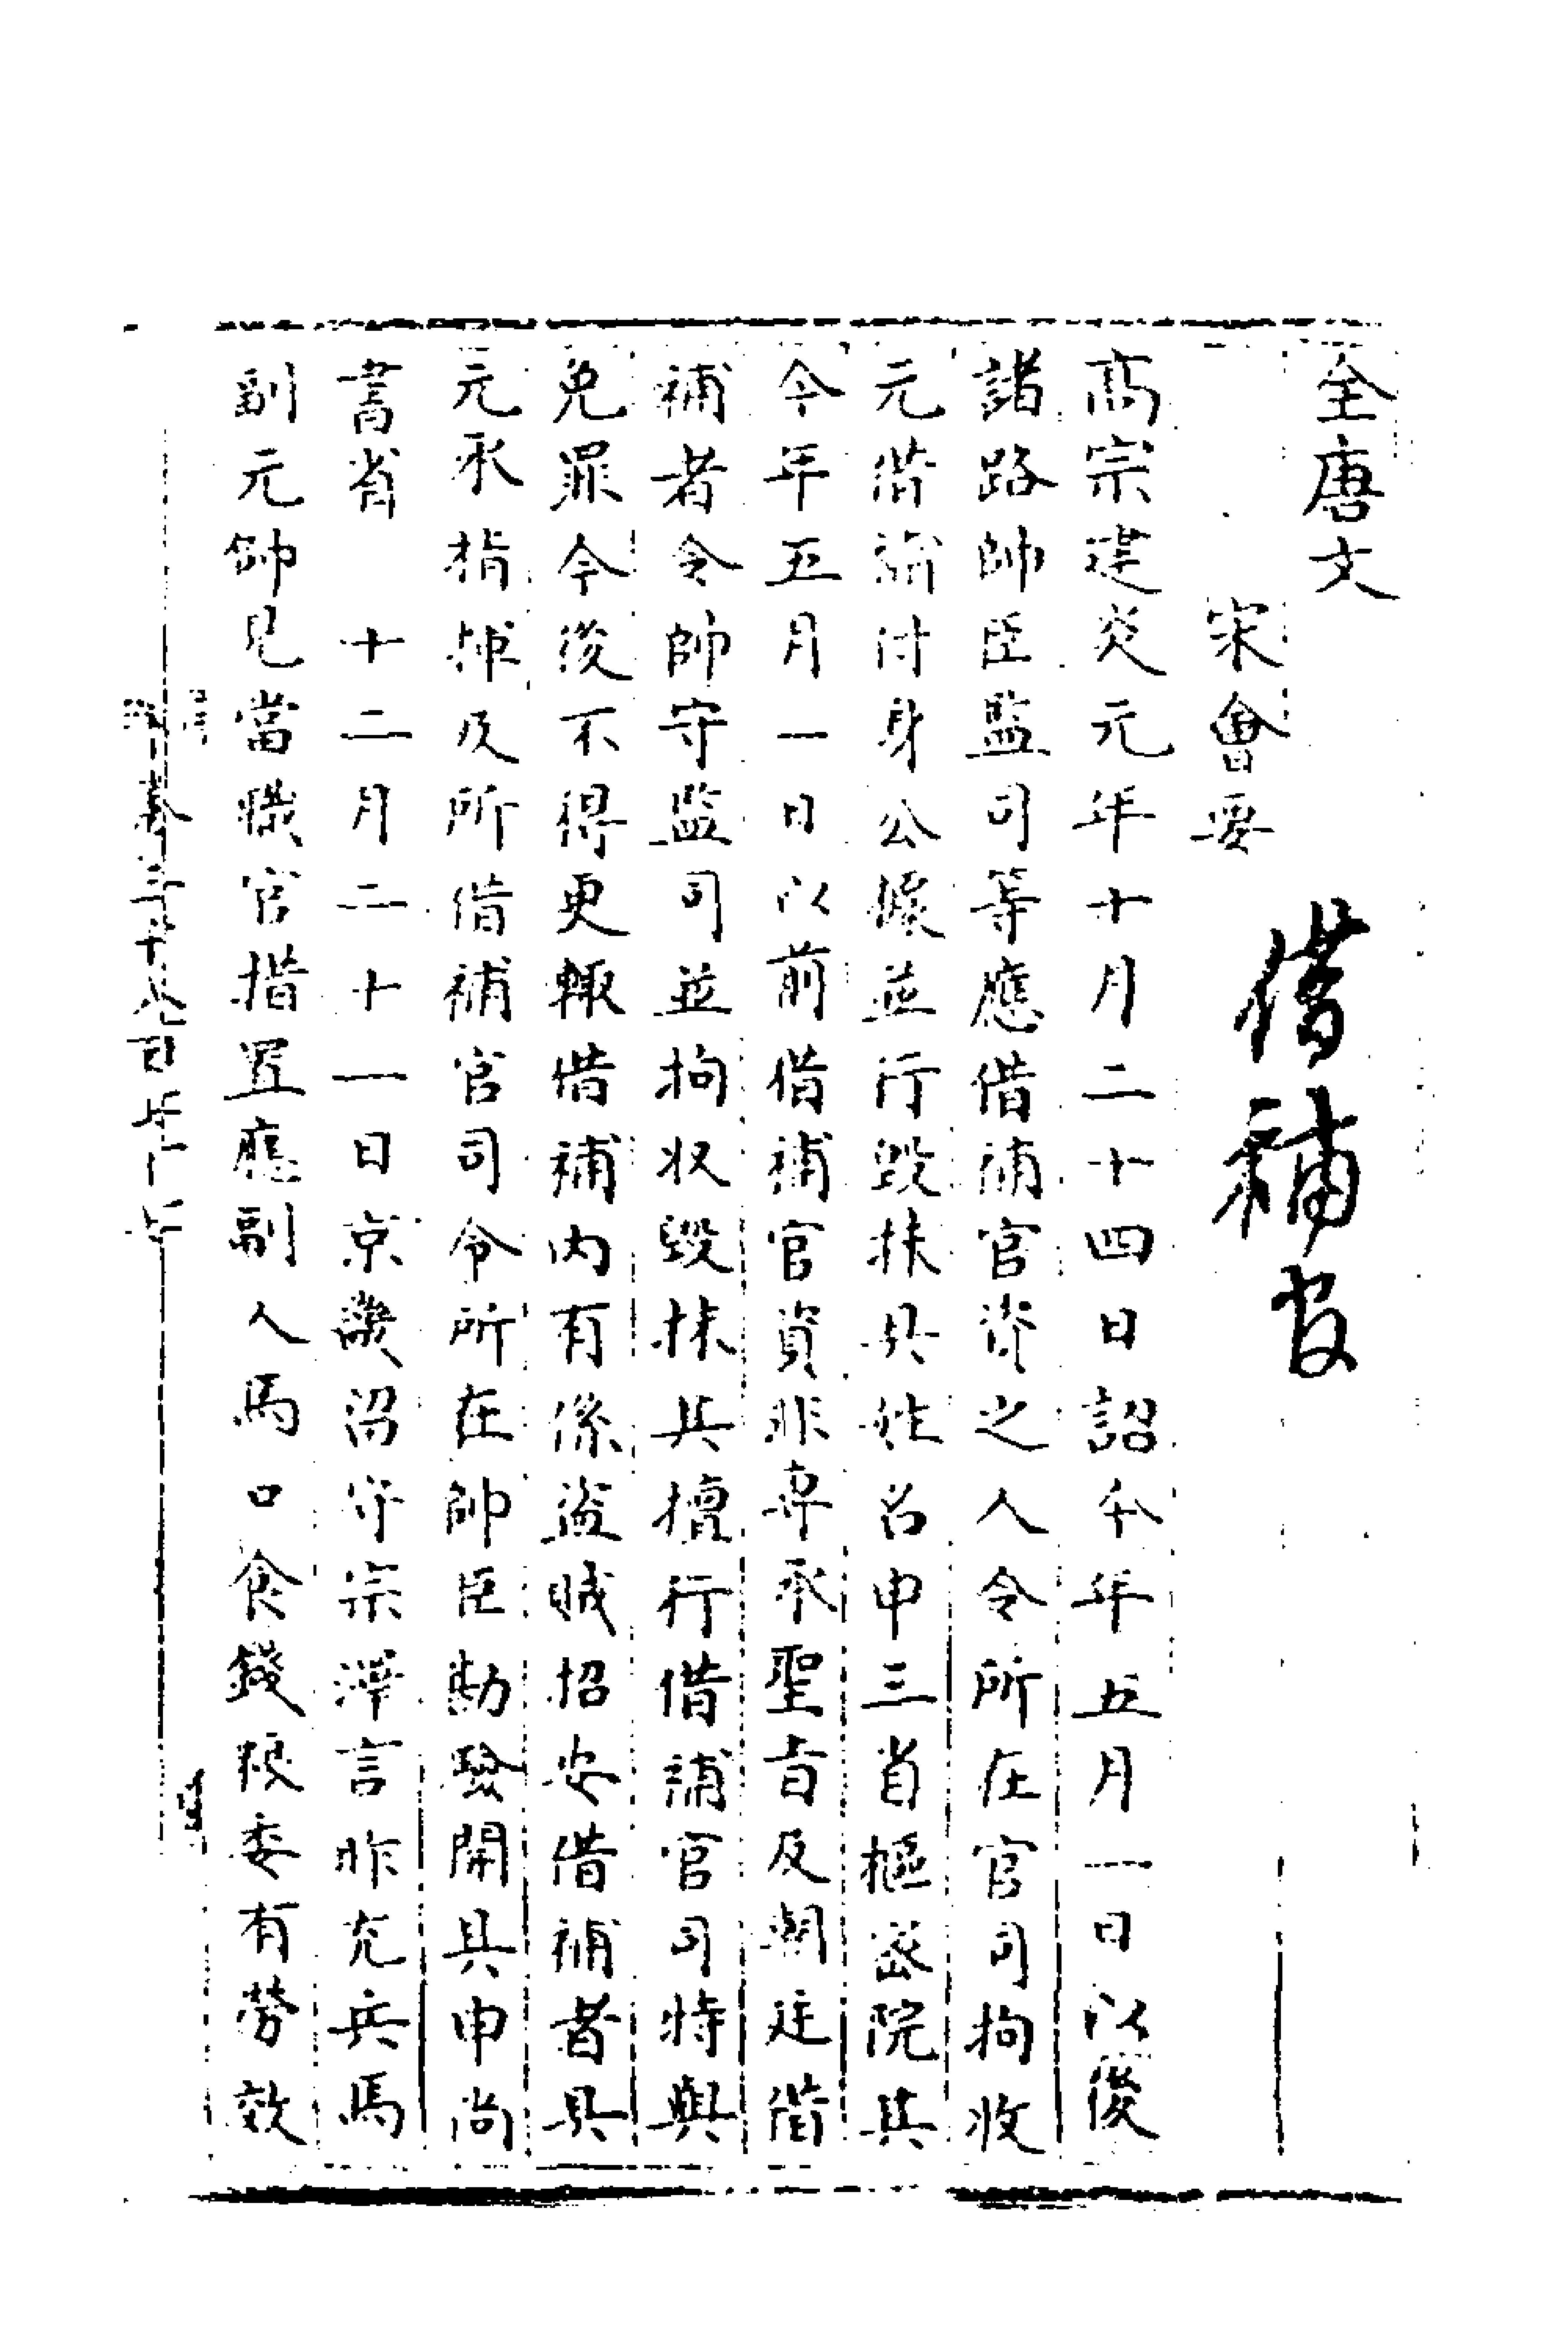 全唐文
宋會要
借補官
高宗建炎元年十月二十四日詔今年五月一日以後
諸路帥臣監司等應借補官資之人令所在官司拘收
元借補付身公據並行毀抹具姓名申三省樞密院其
今年五月一日以前借補官資非奉承聖旨及朝廷借
補者令帥守監司並拘收毀抹其擅行借補官司特與
免罪今後不得更輒借補內有係盜賊招安借補者具
元承指揮及所借補官司令所在帥臣勘驗開具申尚
書省 十二月二十一日京畿留守宗澤言昨充兵馬
副元帥見當職官措置應副人馬口食錢糧委有勞效
卷三千八百七十七